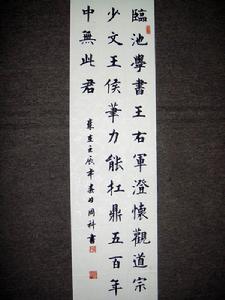 臨池學書王右軍澄懷觀道宗
少文王侯筆力能扛鼎五百年
中無此君
壬辰年 書